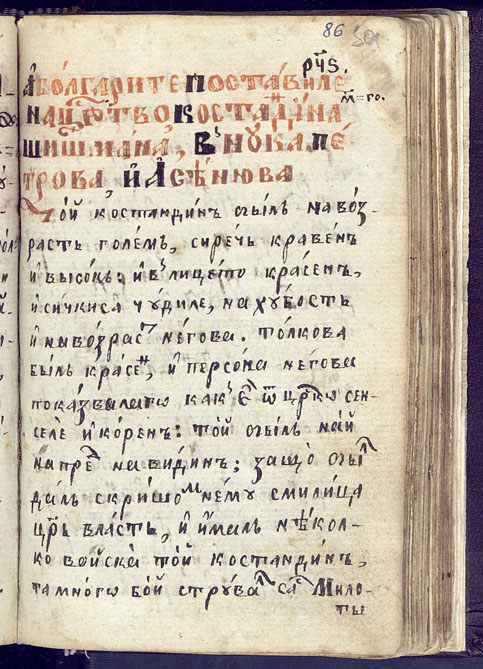 86
рч҃ѕ.
А҆ болгарите поставиле
на црⷭ҇тво костадїна
шишмана, внꙋка пе́
трова, и҆ а҆сѣнюва
Той костандинъ ѡбылъ навоз-
растъ големъ, сиречь кравенъ
и҆ высокъ: и҆ в лицето красенъ,
и҆ сичкися чꙋдиле, на хꙋбость
и҆ на возрасⷮ негова. толкова
былъ красеⷩ, и҆ персона негова
показвалаго какъ є҆ ѿ црⷭко сен-
селе и҆ коренъ: той ѡбылъ най
напреⷣ на видинъ; защо ѡбыⷧ
далъ скришоⷨ немꙋ смилица
црь власть, и҆ и҆малъ нѣкол-
ко войска той костандинъ,
та много бой стрꙋваⷧ саⷭ Мило-
ты